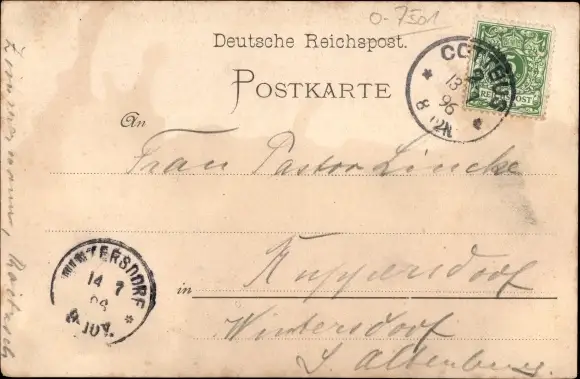 0-7501
Deutsche Reichspost.
POSTKARTE
COTTBUS
13 7
96
8-9N.
5
REICHSPOST
An
Frau Pastor Lincke
in Ruppersdorf
Wintersdorf
S. Altenburg.
WINTERSDORF
14 7
96
10V.